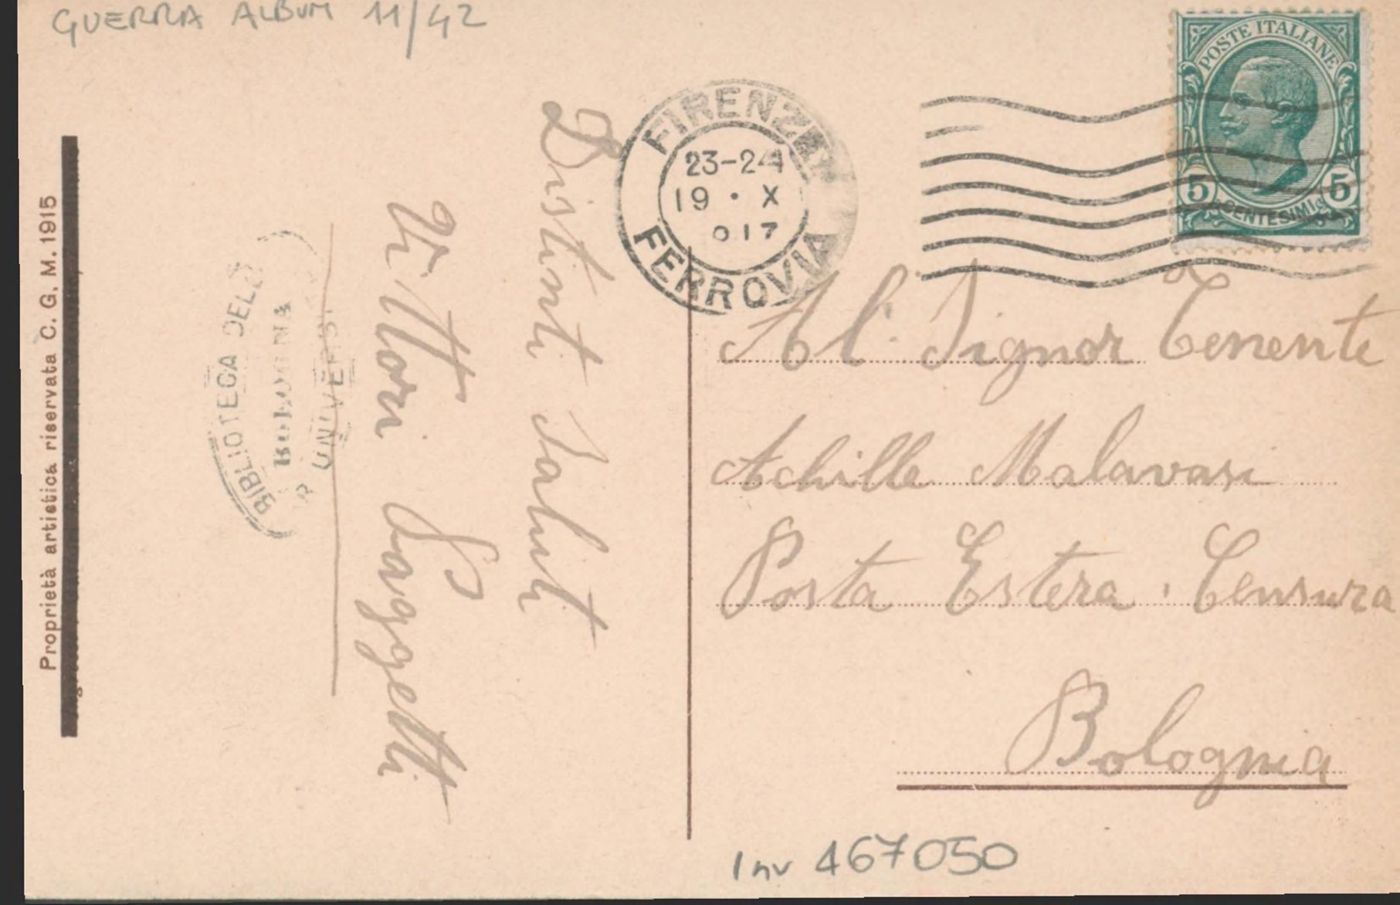 GUERRA ALBUM 11/42
POSTE ITALIANE
5 CENTESIMI 5
FIRENZE
23-24
19 · X
917
FERROVIA
Proprietà artistica riservata C. G. M. 1915
BIBLIOTECA DELL
BOLOGNA
UNIVERSI
Distinti Saluti
Vittori Saggetti
Al Signor Tenente
Achille Malavasi
Posta Estera · Censura
Bologna
Inv 467050